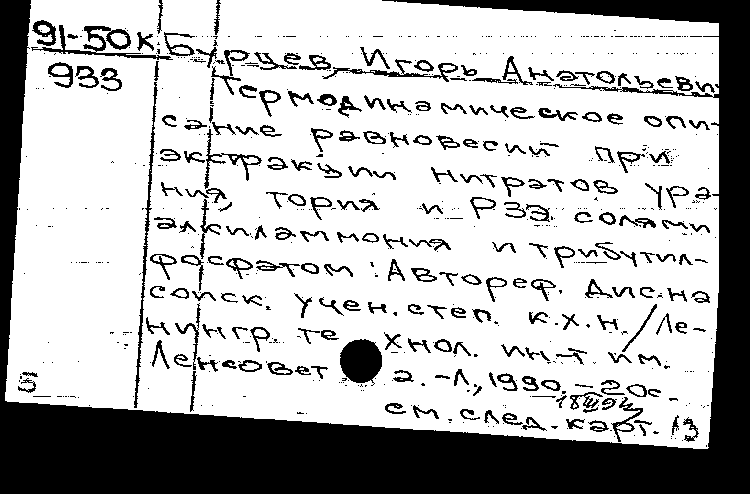 91-50к Бурцев, Игорь Анатольевич
933 Термодинамическое опи-
сание равновесий при
экстракции нитратов ура-
ния, тория и РЗЭ солями
алкиламмония и трибутил-
фосфатом : Автореф. дис. на
соиск. учен. степ. к.х.н. / Ле-
нингр. технол. ин-т им.
Ленсовета. - Л., 1990. - 20с.
см. след. карт. 13
5